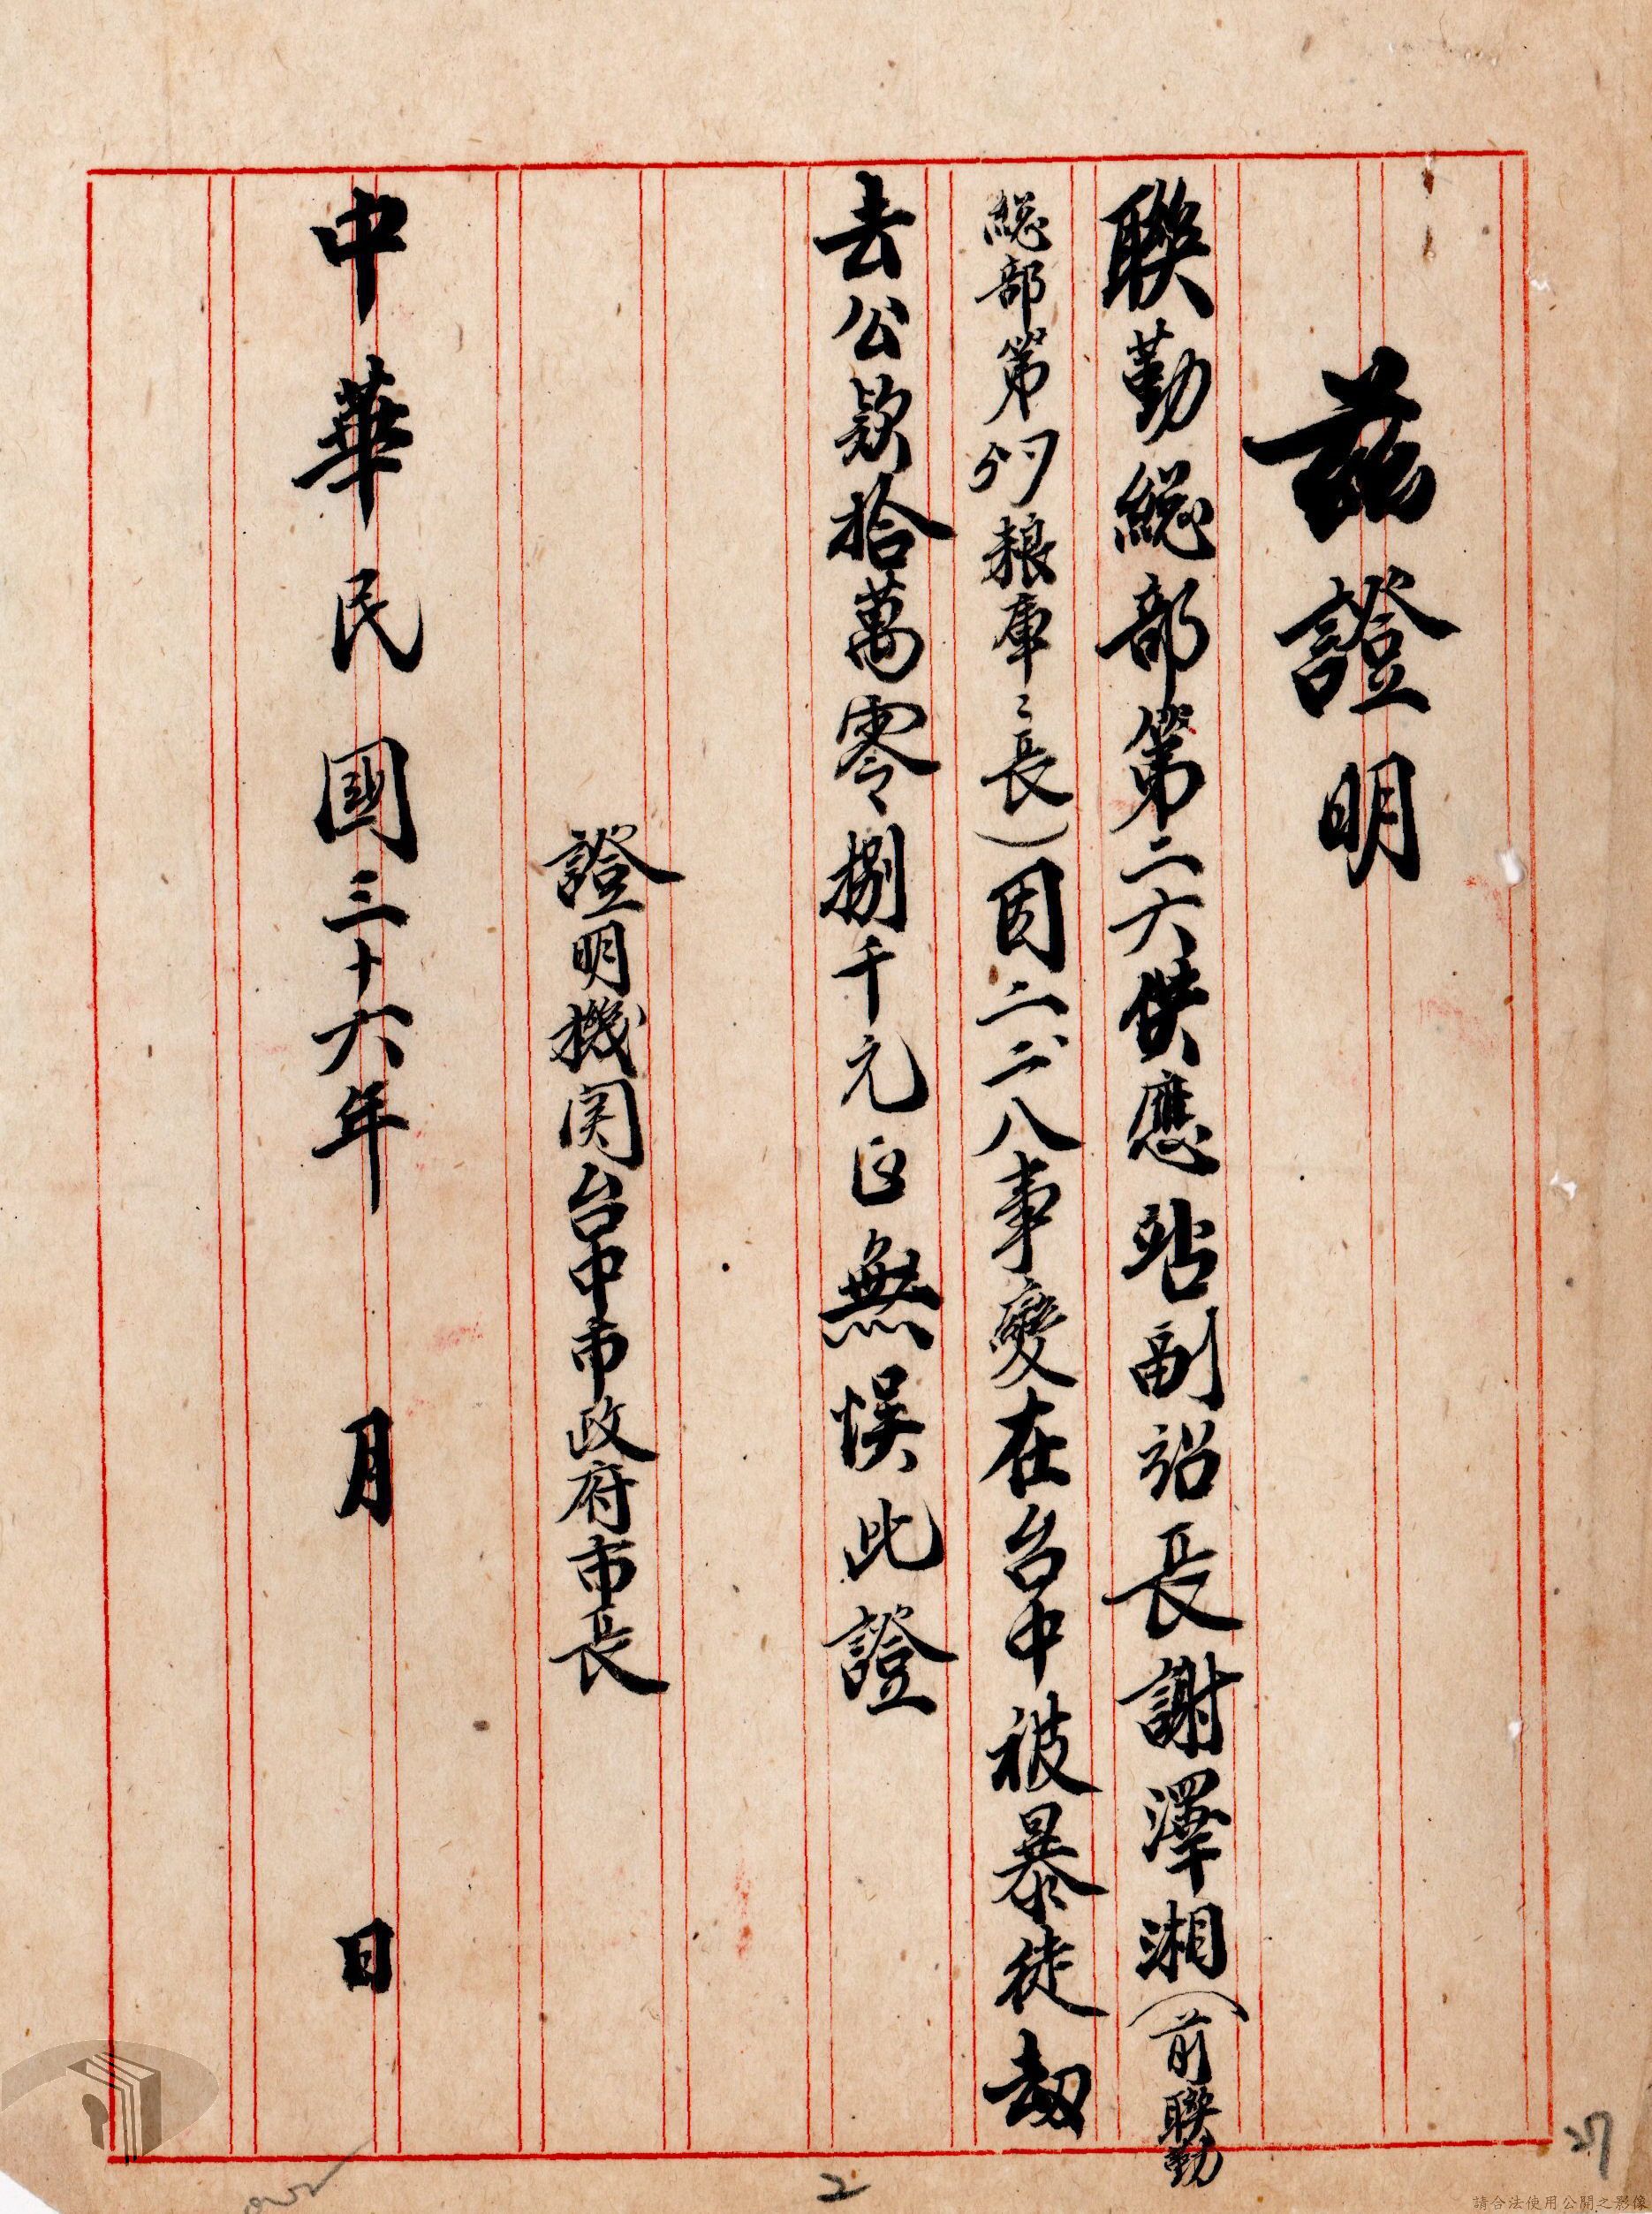 茲證明
聯勤總部第二六供應站副站長謝澤湘（前聯勤
總部第 粮庫々長）因二二八事變在台中被暴徒劫
去公款拾萬零捌千元正無悮此證
證明機関台中市政府市長
中華民國三十六年 月 日
27
2
請合法使用公開之影像